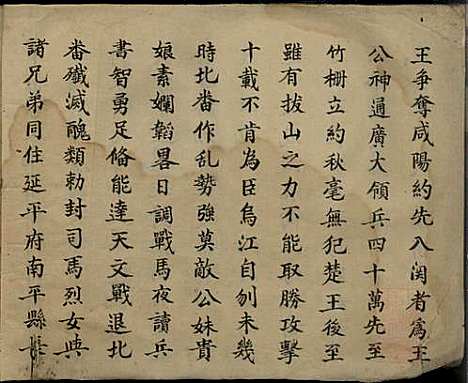 王争奪咸陽約先入関者為王
公神通廣大領兵四十萬先至
竹柵立約秋毫無犯楚王後至
雖有拔山之力不能取勝攻擊
十載不肯為臣烏江自刎未幾
時北畨作乱勢強莫敵公妹貴
娘素嫻韜畧日調戰馬夜讀兵
書智勇足俻能達天文戰退北
畨殲滅醜類勅封司馬烈女與
諸兄弟同住延平府南平縣長